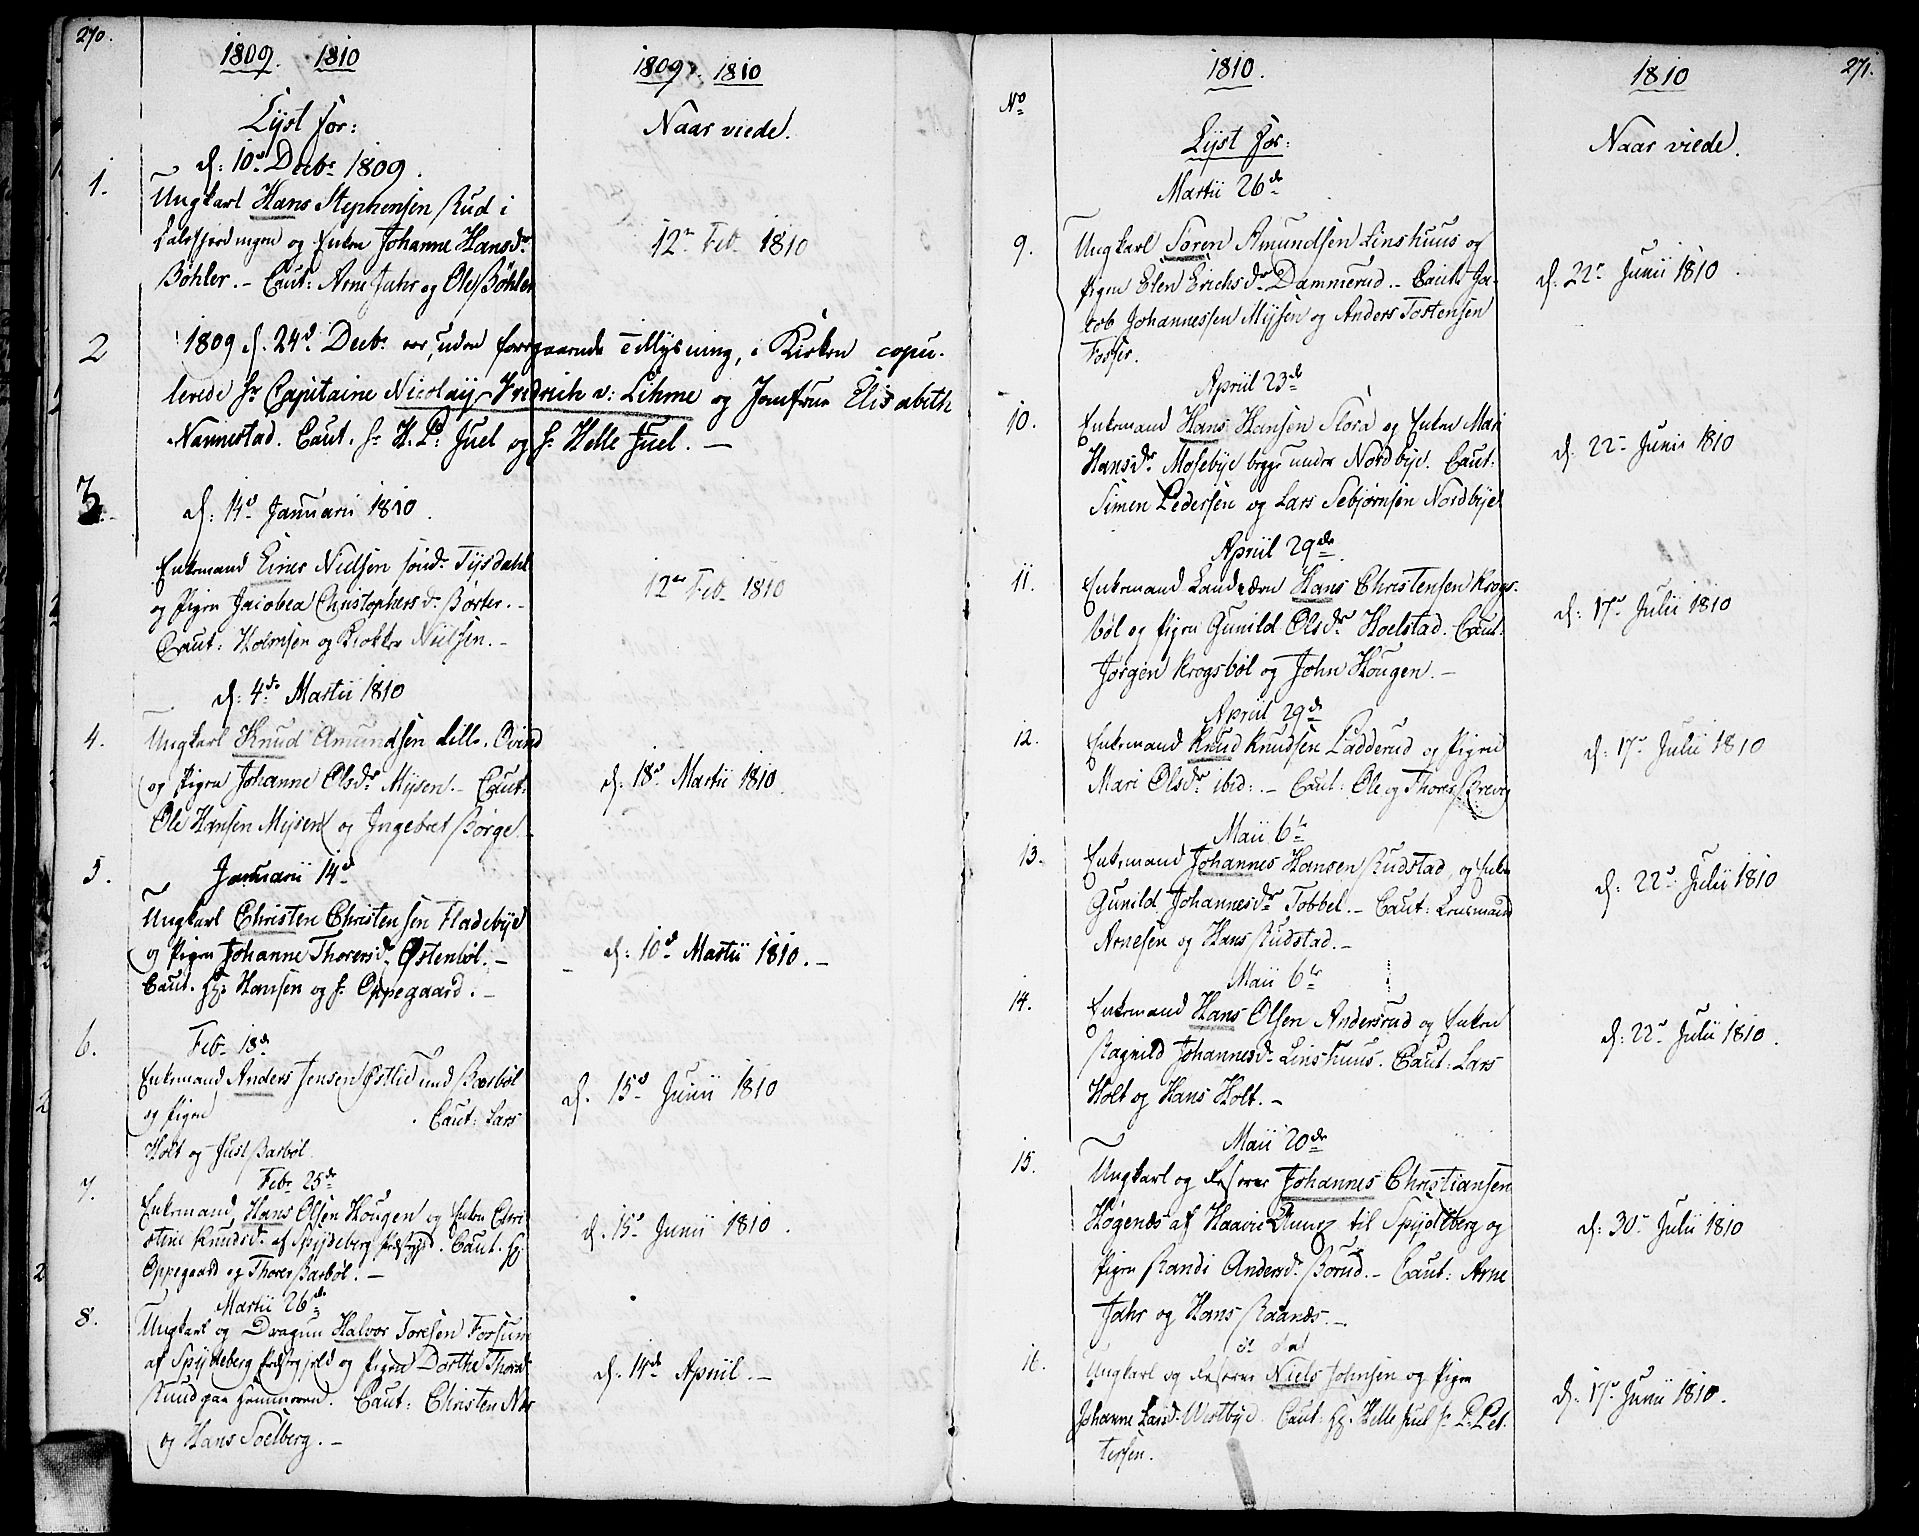 270.
1809. 1810
Lyst for:
d: 10d Decbr 1809.
1.
Ungkarl Hans Stephensen Rud i
og Enken Johanne Hansdr
Bøhler. - Caut: Arne Jahr og Ole Bøhler
2
1809 d. 24d Decbr er, uden foregaaende Tillysning, i Kirken copu-
lerede Hr Capitaine Nicolay Fredrich v: Lihme og Jomfrue Elisabeth
Nannestad. Caut. Hr H. P: Juel og Hr Helle Juel. -
3.
d: 14d Januarii 1810.
Enkemand Einer Nielsen sønd. Tysdahl
og Pigen Jacobea Christophersdr Børter. -
Caut: Holmsen og Klokker Nielsen. -
d: 4de Martii 1810
4.
Ungkarl Knud Amundsen Lille-Ovind
og Pigen Johanne Olsdr Mysen. - Caut:
Ole Hansen Mysen og Ingebret Børge.
5.
Januarii 14d
Ungkarl Christen Christensen Fladebye
og Pigen Johanne Thorersdr Østenbøl. -
Caut. Hansen og Hr Oppegaard. -
6.
Feb. 18de
Enkemand Anders Jensen Østlid und Barbøl
og Pigen . Caut: Lars
Holt og Just Barbøl.
7.
Febr 25de
Enkemand Hans Olsen Hougen og Enken Chri-
stine Knudsdr af Spydeberg Præstegjeld. Caut.
Oppegaard og Thorer Barbøl. -
8.
Martii 26de
Ungkarl og Dragun Halvor Toresen Forsum
af Spydeberg Præstegjeld og Pigen Dorthe Thorsdr
Ruud paa Hemmersem. Caut: Christen Næs
og Hans Soelberg. -
1809. 1810
Naar viede.
12te Feb. 1810
12te Feb. 1810
d: 18d Martii 1810.
d: 10d Martii 1810. -
d. 15d Junii 1810
d. 15d Junii 1810.
d. 14de Apriil. -
1810.
No
Lyst for:
Martii 26de
9.
Ungkarl Søren Amundsen Linshuus og
Pigen Elen Erichsdr Dammerud. - Caut: Ja-
cob Johannessen Mysen og Anders Tostensen
Fosser.
Apriil 23de
10.
Enkemand Hans Hansen Flora og Enken Mari
Hansdr Mosebye begge under Nordbye. Caut:
Simen Pedersen og Lars Sebjørnsen Nordbye
Apriil 29de
11.
Enkemand Landværn Hans Christensen Krogs-
bøl og Pigen Gunild Olsdr Hoelstad. Caut:
Jørgen Krogsbøl og John Hougen. -
Apriil 29de
12.
Enkemand Knud Knudsen Ladderud og Pigen
Mari Olsdr ibid: - Caut: Ole og Thorer Brevig
Maii 6te
13.
Enkemand Johannes Hansen Rudstad, og Enken
Gunild Johannesdr Tobbel. - Caut: Lensmand
Arnesen og Hans Rudstad. -
Maii 6te
14.
Enkemand Hans Olsen Andersrud og Enken
Ragnild Johannesdr Linshuus. Caut: Lars
Holt og Hans Holt. -
Maii 20de
15.
Ungkarl og Reserve Johannes Christiansen
Høgenæs af Haavie til Spydeberg og
Pigen Randi Andersdr Borud. - Caut: Arne
Jahr og Hans Raanæs. -
16.
Ungkarl og Reserve Niels Johnsen og Pigen
Johanne Larsdr Westbye. Caut: Helle Juel Hr P. Pet-
tersen.
1810
271.
Naar viede.
d. 22de Junii 1810.
d. 22de Junii 1810
d: 17de Julii 1810
d: 17de Julii 1810
d: 22de Julii 1810
d: 22de Julii 1810.
d: 30te Julii 1810
d: 17de Junii 1810.